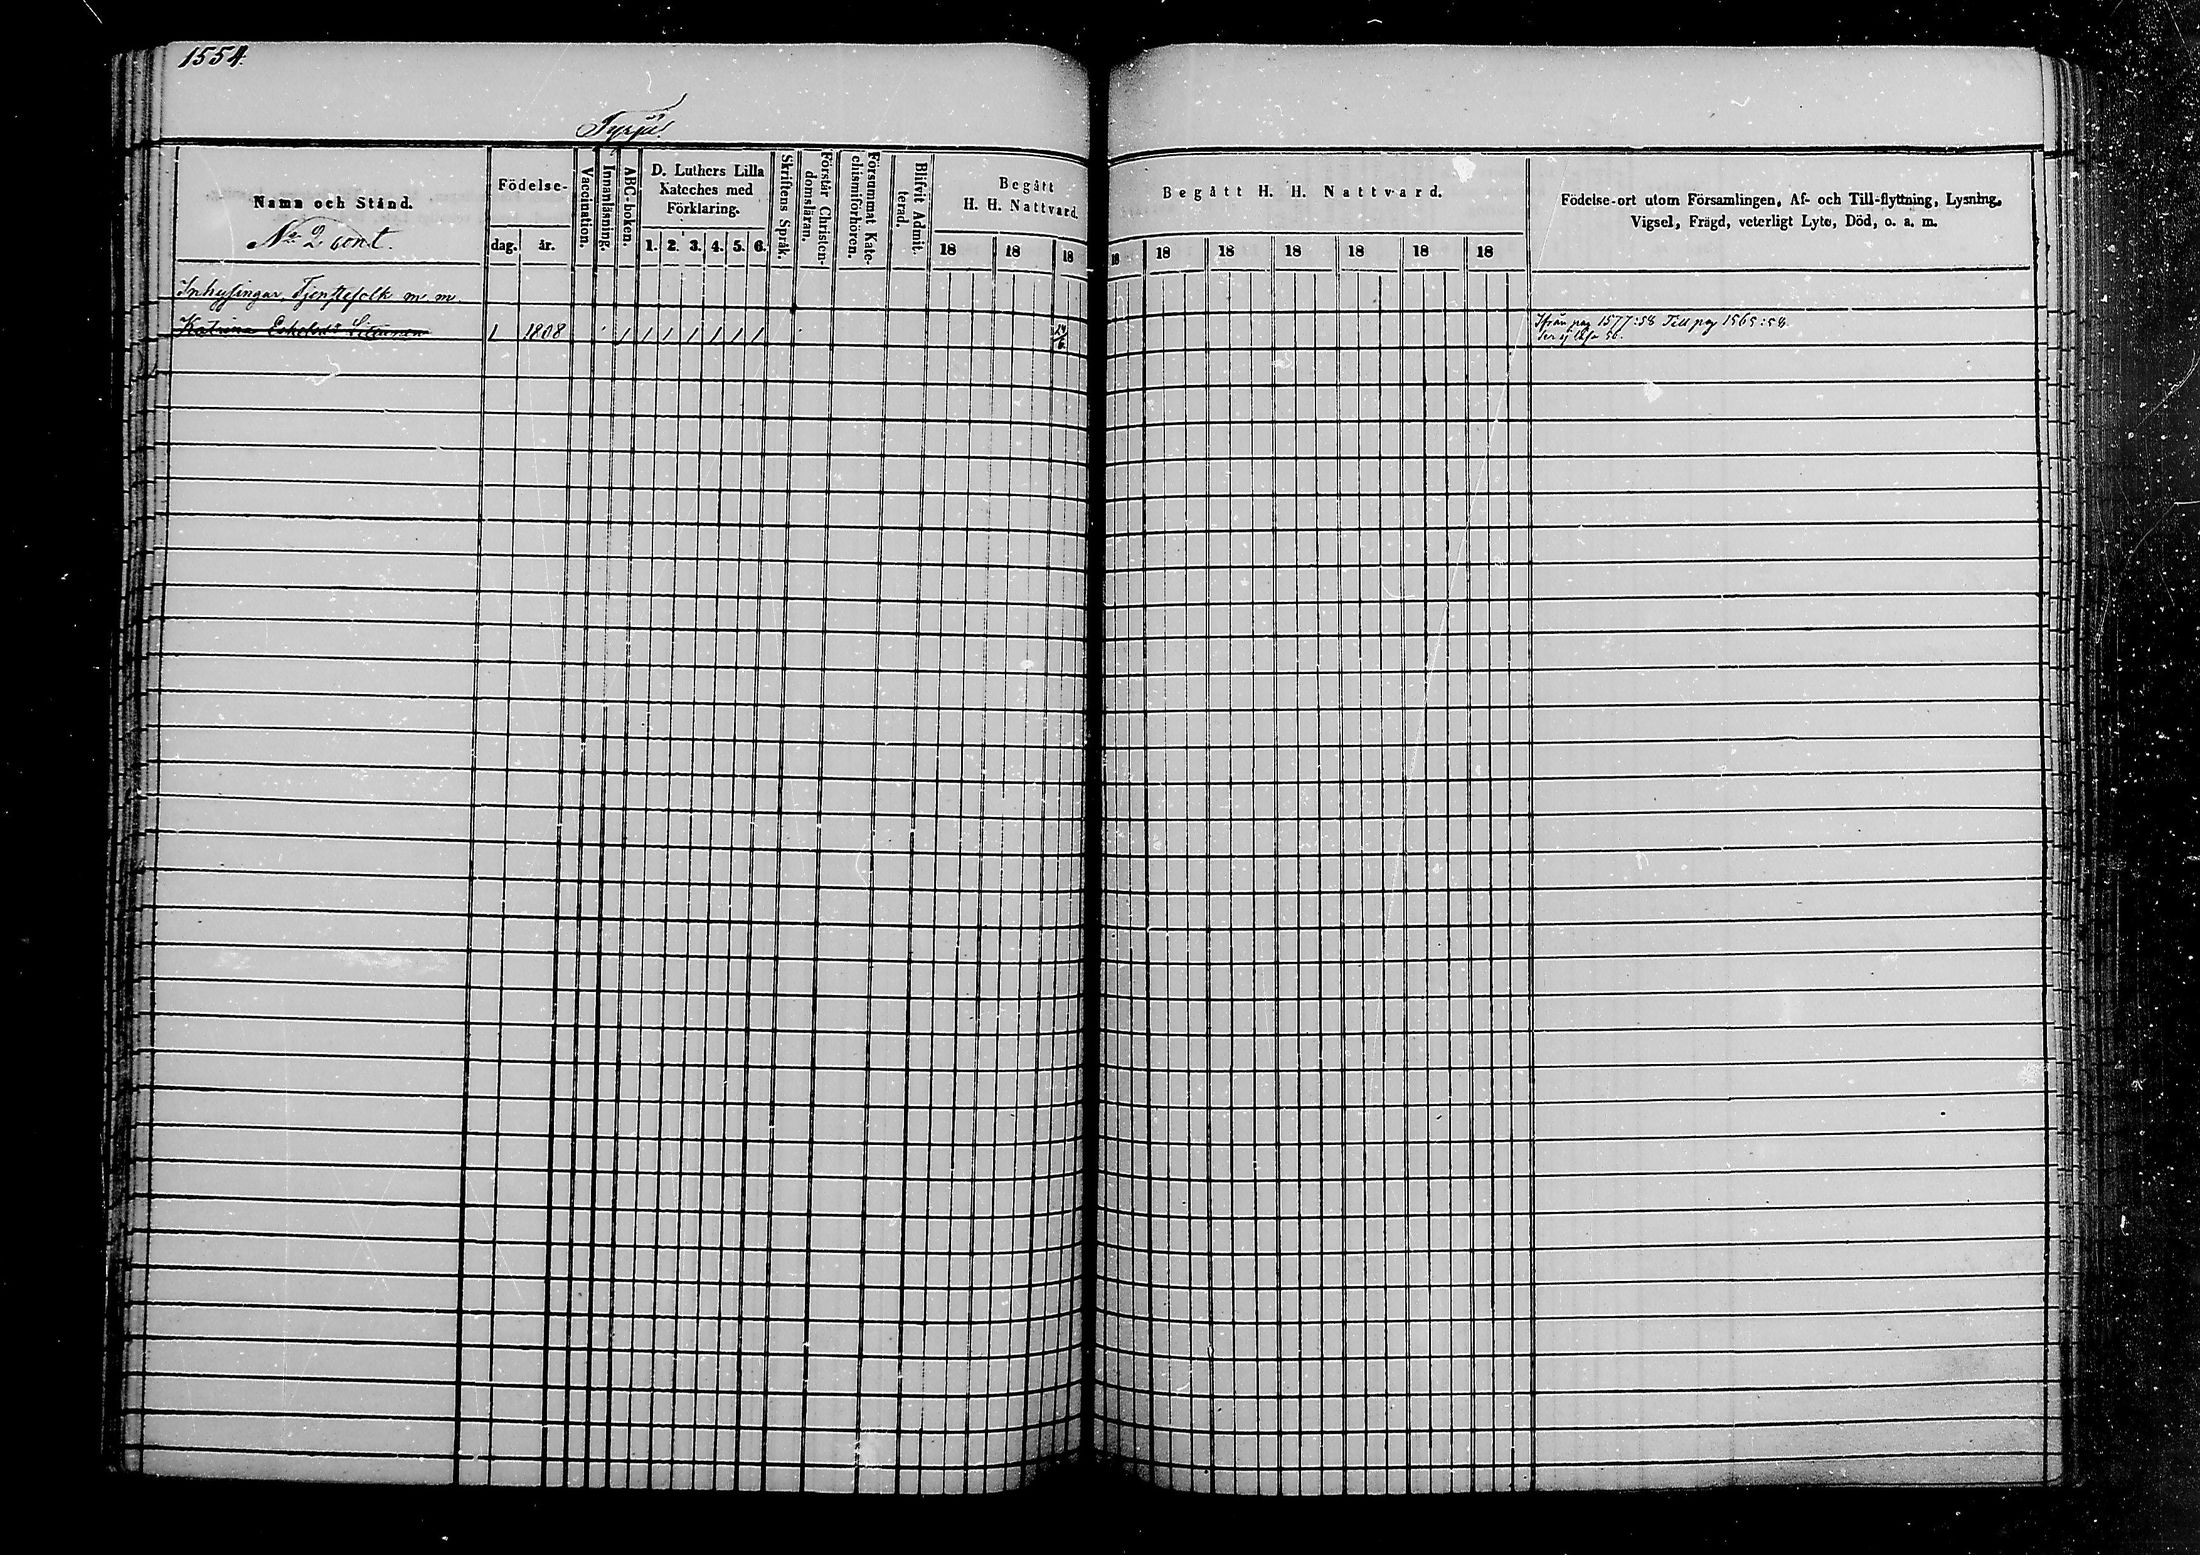 1554.
Tyrjä.
Namn och Stånd.
No 2 cont.
Födelse-
dag. år.
Vaccination.
Innanläsning.
ABC-boken.
D. Luthers Lilla
Kateches med
Förklaring.
1. 2. 3. 4. 5. 6.
Skriftens Språk.
Förstår Christen-
domsläran.
Försummat Kate-
chismiförhören.
Blifvit Admit-
terad.
Begått
H. H. Nattvard.
18 18 18
Begått H. H. Nattvard.
18 18 18 18 18 18 18
Födelse-ort utom Församlingen, Af- och Till-flyttning, Lysning,
Vigsel, Frägd, veterligt Lyte, Död, o. a. m.
Inhysingar, Tjenstefolk m. m.
Katrina 1 1808 / / / / / / /
Ifrån pag 1577:58 Till pag 1565:58